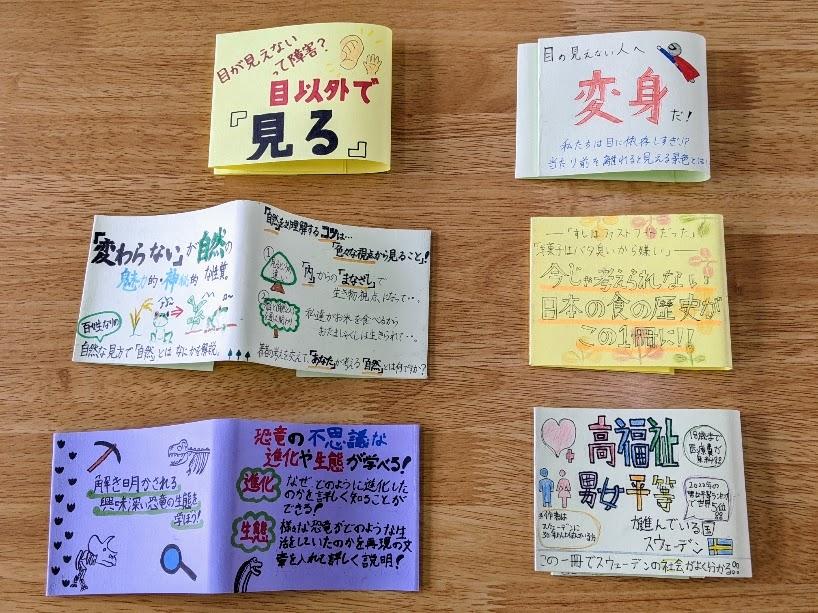 目が見えない
って障害?
目以外で
『見る』
目の見えない人へ
変身だ!
私たちは目に依存しすぎ!?
当たり前を離れると見える景色とは!
「変わらない」が自然の
魅力的・神秘的な性質。
百姓なりの
自然な見方で「自然」とはなにかを解説。
「自然」を理解するコツは…
「色々な視点から見ること」!
①
「内」からの「まなざし」で
生き物視点になって…。
②
私達がお米を食べるから
おたまじゃくしは生きられて…。
著者の考えを交えて、「あなた」が考える「自然」とは何ですか?
「すしはファストフードだった」
「洋菓子はバタ臭いから嫌い」
今じゃ考えられない
日本の食の歴史が
この1冊に!!
解き明かされる
興味深い恐竜の生態を
学ぼう!
恐竜の不思議な
進化や生態が学べる!
進化
なぜ、どのように進化した
のかを詳しく知ることが
できる!
生態
様々な恐竜がどのような生
活をしていたのかを再現の文
章を入れて詳しく説明!
高福祉
18歳まで
医療費が
無料
男女平等
2022年の
で世界5位
が進んでいる国
スウェーデン
※作者は
スウェーデンに
この一冊でスウェーデンの社会がよく分かる